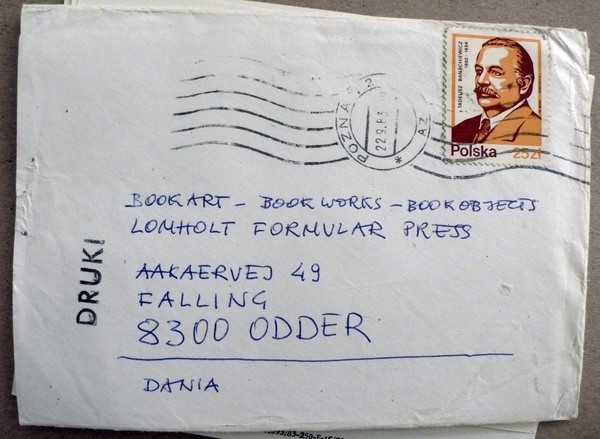 TADEUSZ BANACHIEWICZ
1882 - 1954
Polska 25 zł
POZNAŃ 2
22.9.83
AZ
*
BOOK ART - BOOK WORKS - BOOK OBJECTS
LOMHOLT FORMULAR PRESS
AAKAERVEJ 49
FALLING
8300 ODDER
DANIA
DRUKI